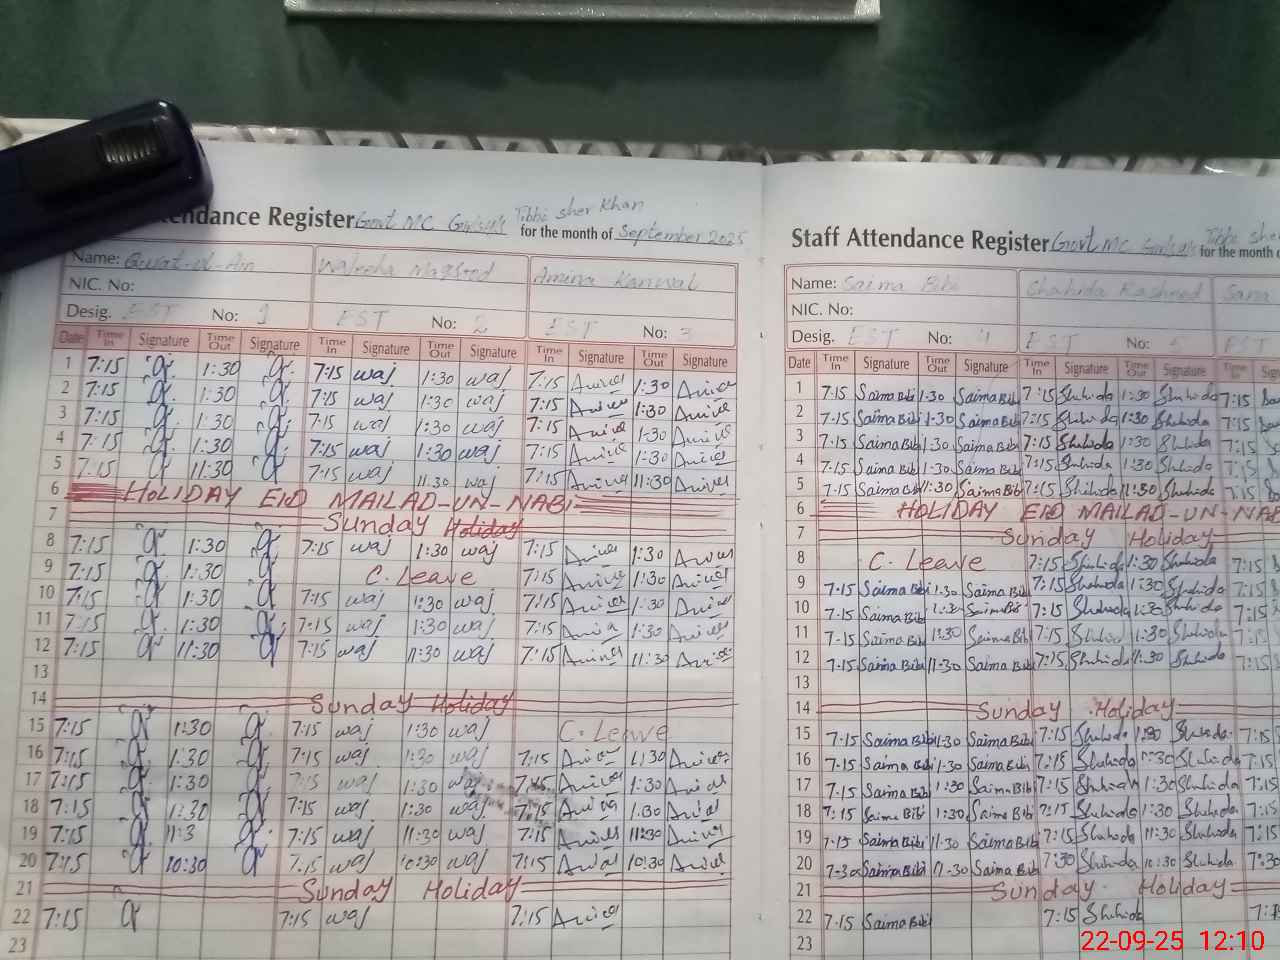 Attendance Register Govt MC Girls H/S Tibbi Sher Khan for the month of September 2025
Name: Qurat-ul-Ain Waleeha Maqsood Amina Kanwal
NIC. No:
Desig. EST No: 1 EST No: 2 EST No: 3
Date Time In Signature Time Out Signature Time In Signature Time Out Signature Time In Signature Time Out Signature
1 7:15 1:30 7:15 waj 1:30 waj 7:15 1:30
2 7:15 1:30 7:15 waj 1:30 waj 7:15 1:30
3 7:15 1:30 7:15 waj 1:30 waj 7:15 1:30
4 7:15 1:30 7:15 waj 1:30 waj 7:15 1:30
5 7:15 11:30 7:15 waj 11:30 waj 7:15 11:30
6 HOLIDAY EID MAILAD-UN-NABI
7 Sunday Holiday
8 7:15 1:30 7:15 waj 1:30 waj 7:15 1:30
9 7:15 1:30 C. Leave 7:15 1:30
10 7:15 1:30 7:15 waj 1:30 waj 7:15 1:30
11 7:15 1:30 7:15 waj 1:30 waj 7:15 1:30
12 7:15 11:30 7:15 waj 11:30 waj 7:15 11:30
13
14 Sunday Holiday
15 7:15 1:30 7:15 waj 1:30 waj C. Leave
16 7:15 1:30 7:15 waj 1:30 waj 7:15 1:30
17 7:15 1:30 7:15 waj 1:30 waj 7:15 1:30
18 7:15 1:30 7:15 waj 1:30 waj 7:15 1:30
19 7:15 11:3 7:15 waj 11:30 waj 7:15 11:30
20 7:15 10:30 7:15 waj 10:30 waj 7:15 10:30
21 Sunday Holiday
22 7:15 7:15 waj 7:15
23
Staff Attendance Register Govt MC Girls H/S Tibbi Sher for the month
Name: Saima Bibi Shahida Rasheed Sana
NIC. No:
Desig. EST No: 4 EST No: 5 EST
Date Time In Signature Time Out Signature Time In Signature Time Out Signature Time In
1 7:15 Saima Bibi 1:30 Saima Bibi 7:15 Shahida 1:30 Shahida 7:15
2 7:15 Saima Bibi 1:30 Saima Bibi 7:15 Shahida 1:30 Shahida 7:15
3 7:15 Saima Bibi 1:30 Saima Bibi 7:15 Shahida 1:30 Shahida 7:15
4 7:15 Saima Bibi 1:30 Saima Bibi 7:15 Shahida 1:30 Shahida 7:15
5 7:15 Saima Bibi 11:30 Saima Bibi 7:15 Shahida 11:30 Shahida 7:15
6 HOLIDAY EID MAILAD-UN-NAB
7 Sunday Holiday
8 C. Leave 7:15 Shahida 1:30 Shahida 7:15
9 7:15 Saima Bibi 1:30 Saima Bibi 7:15 Shahida 1:30 Shahida 7:15
10 7:15 Saima Bibi 1:30 Saima Bibi 7:15 Shahida 1:30 Shahida 7:15
11 7-15 Saima Bibi 1:30 Saima Bibi 7:15 Shahida 1:30 Shahida 7:15
12 7-15 Saima Bibi 11-30 Saima Bibi 7:15 Shahida 11:30 Shahida 7:15
13
14 Sunday Holiday
15 7-15 Saima Bibi 1-30 Saima Bibi 7:15 Shahida 1:30 Shahida 7:15
16 7-15 Saima Bibi 1-30 Saima Bibi 7:15 Shahida 1:30 Shahida 7:15
17 7-15 Saima Bibi 1:30 Saima Bibi 7:15 Shahida 1:30 Shahida 7:15
18 7:15 Saima Bibi 1:30 Saima Bibi 7:15 Shahida 1:30 Shahida 7:15
19 7-15 Saima Bibi 11-30 Saima Bibi 7:15 Shahida 11:30 Shahida 7:15
20 7-30 Saima Bibi 11-30 Saima Bibi 7:30 Shahida 10:30 Shahida 7:30
21 Sunday Holiday
22 7-15 Saima Bibi 7:15 Shahida 7:1
23
22-09-25 12:10